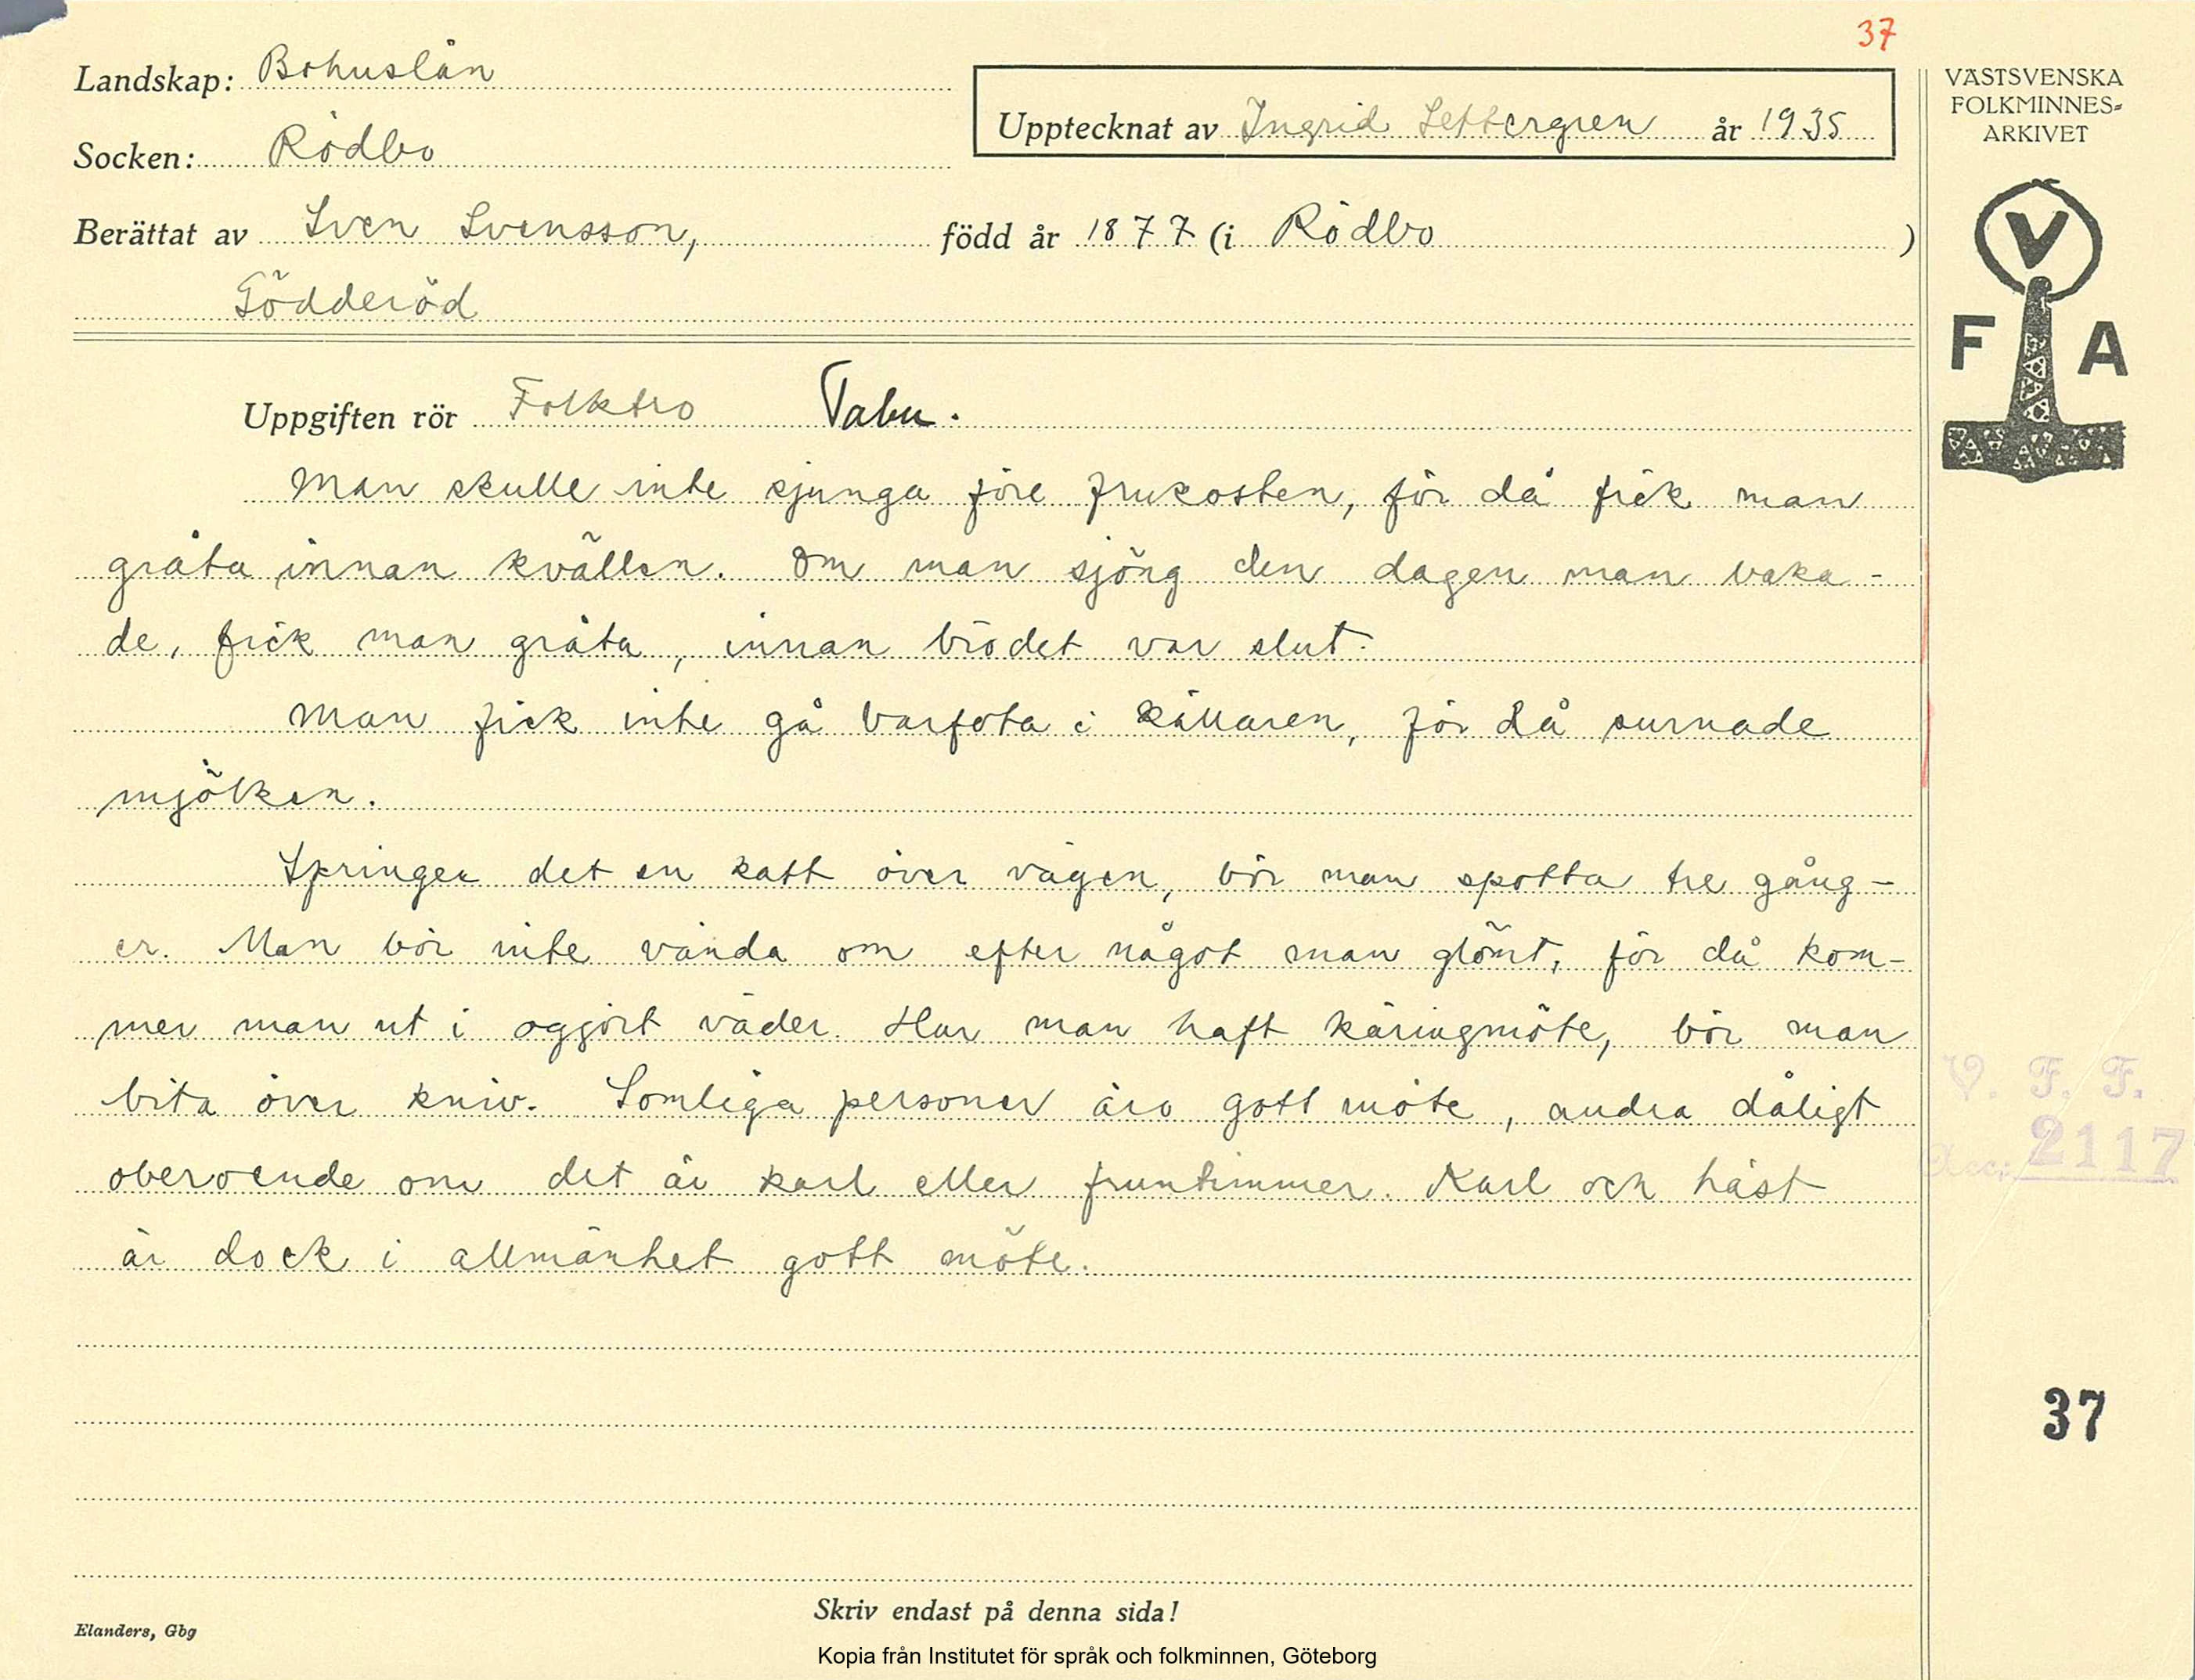 37
Landskap: Bohuslän
Socken: Rödbo
Upptecknat av Ingrid Settergren år 1935
Berättat av Sven Svensson, född år 1877 (i Rödbo )
Gödderöd
Uppgiften rör Folktro Tabu.
Man skulle inte sjunga före frukosten, för då fick man
gråta innan kvällen. Om man sjöng den dagen man baka-
de, fick man gråta, innan brödet var slut.
Man fick inte gå barfota i källaren, för då surnade
mjölken.
Springer det en katt över vägen, bör man spotta tre gång-
er. Man bör inte vända om efter något man glömt, för då kom-
mer man ut i ogjort väder. Har man haft käringmöte, bör man
bita över kniv. Somliga personer äro gott möte, andra dåligt
oberoende om det är karl eller fruntimmer. Karl och häst
är dock i allmänhet gott möte.
Skriv endast på denna sida!
Elanders, Gbg
Kopia från Institutet för språk och folkminnen, Göteborg
VÄSTSVENSKA
FOLKMINNES-
ARKIVET
V
F A
V. F. F.
Acc: 2117
37